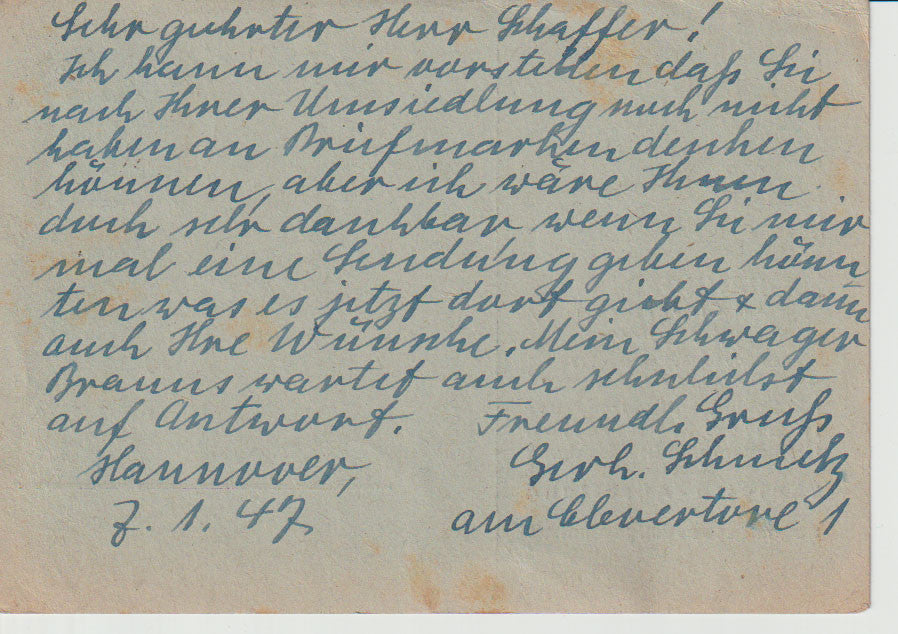 Sehr geehrter Herr Schaffer!
Ich kann mir vorstellen daß Sie
nach Ihrer Umsiedlung noch nicht
haben an Briefmarken denken
können, aber ich wäre Ihnen
doch sehr dankbar wenn Sie mir
mal eine Sendung geben könn
ten was es jetzt dort giebt + dann
auch Ihre Wünsche. Mein Schwager
Brauns wartet auch sehnlichst
auf Antwort. Freundl. Gruß
Hannover, Gerh. Schmutz
7. 1. 47 am Clevertore 1